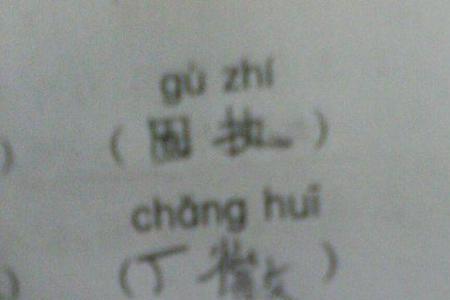 gù zhí
( 固 执 )
chǎng huī
( 厂 徽 )